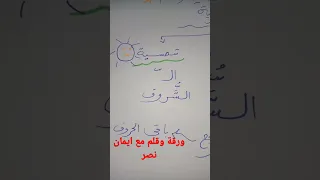 شمسية
الـ
الشروق
مع باقي الحروف
ورقة وقلم مع ايمان
نصر